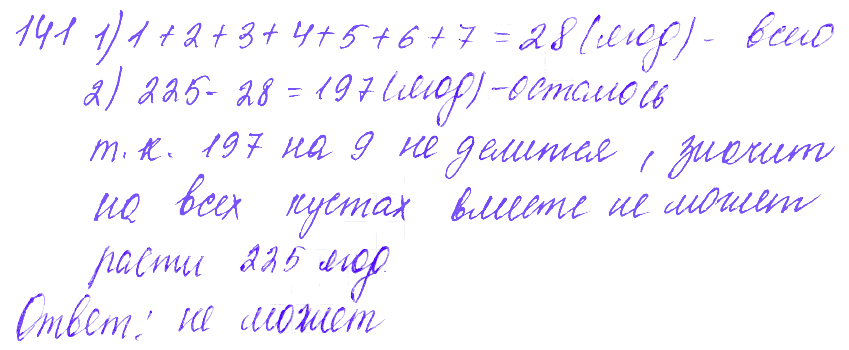 141 1) 1+2+3+4+5+6+7=28 (ягод) - всего
2) 225-28=197 (ягод) - осталось
т.к. 197 на 9 не делится, значит
на всех кустах вместе не может
расти 225 ягод
Ответ: не может